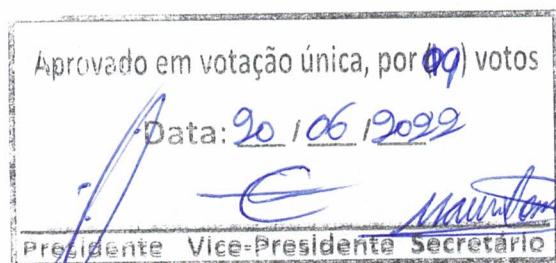 Aprovado em votação única, por (09) votos
Data: 20 / 06 / 2022
Presidente Vice-Presidente Secretário